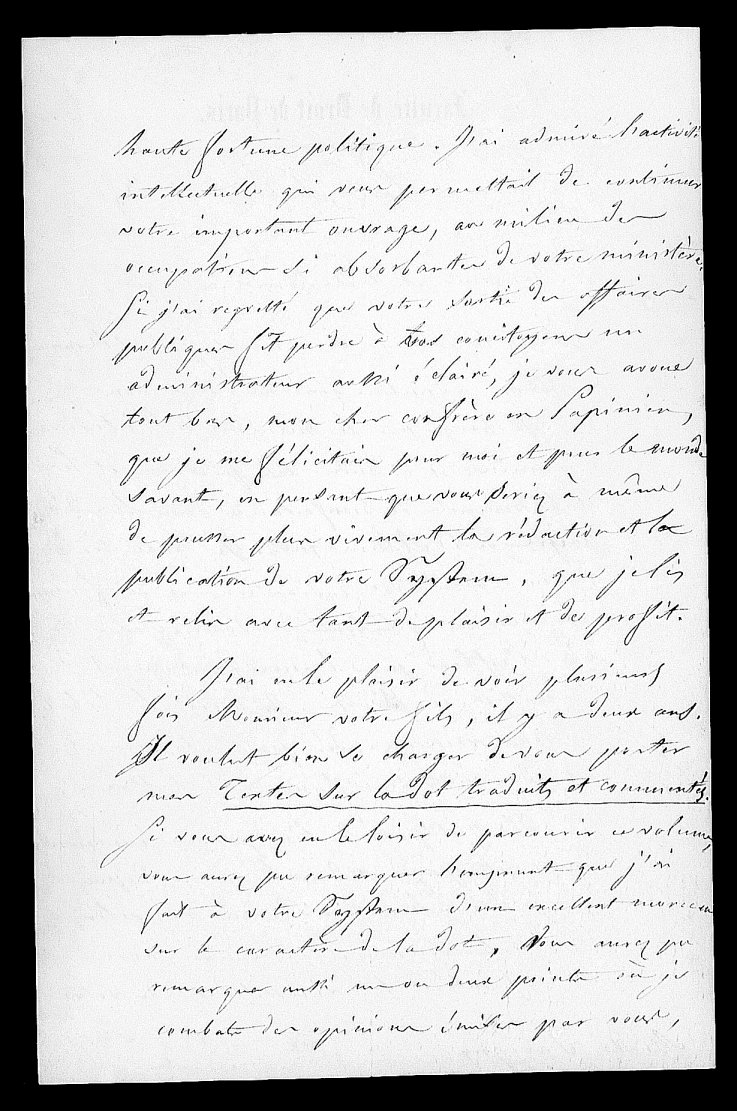 haute fortune politique. J'ai admiré l'activité
intellectuelle qui vous permettait de continuer
votre important ouvrage, au milieu des
occupations si absorbantes de votre ministère.
Si j'ai regretté que votre sortie des affaires
publiques fît perdre à vos concitoyens un
administrateur aussi éclairé, je vous avoue
tout bas, mon cher confrère en Papinien,
que je me félicitais pour moi et pour le monde
savant, en pensant que vous seriez à même
de pousser plus vivement la rédaction et la
publication de votre System, que je lis
et relis avec tant de plaisir et de profit.
J'ai eu le plaisir de voir plusieurs
fois Monsieur votre fils, il y a deux ans.
Il voulut bien se charger de vous porter
mes Textes sur la dot traduits et commentés.
Si vous avez eu le loisir de parcourir ce volume,
vous aurez pu remarquer l'emprunt que j'ai
fait à votre System d'un excellent morceau
sur le caractère de la dot, Vous aurez pu
remarquer aussi un ou deux points où je
combats des opinions émises par vous,